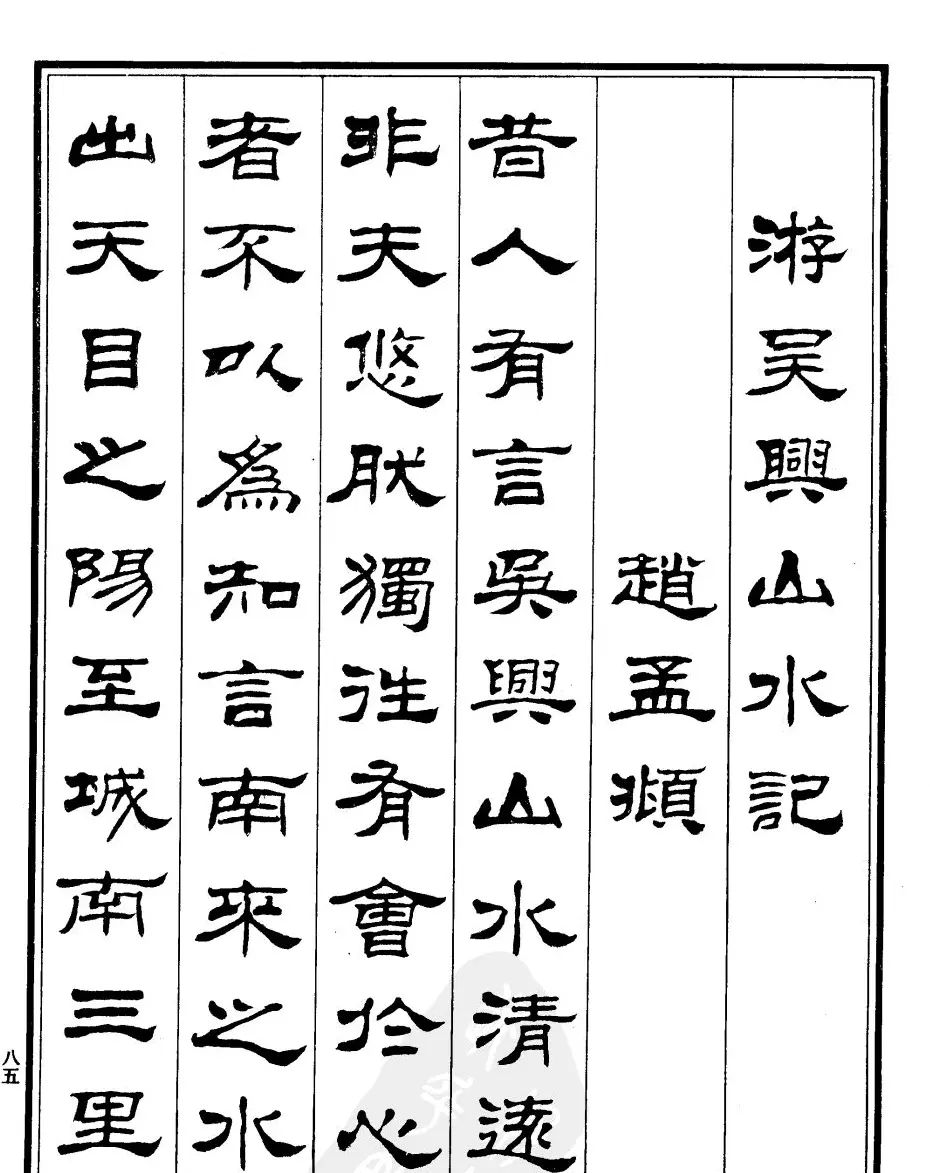 游吴興山水記
趙孟頫
昔人有言吳興山水清遠
非夫悠肰獨徃有會於心
者不以為知言南來之水
出天目之陽至城南三里
八五